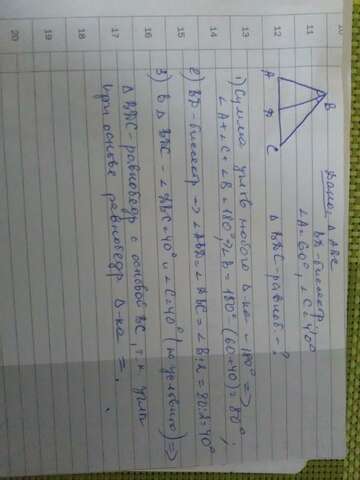 Дано: Δ ABC
BD - биссектр.;
∠A = 60°, ∠C = 40°
Δ BDC - равноб - ?
B
A
D
C
1) Сумма углов любого Δ-ка = 180° =>
∠A + ∠C + ∠B = 180° => ∠B = 180° (60+40) = 80°;
2) BD - биссектр => ∠ABD = ∠DBC = ∠B:2 = 80:2 = 40°
3) В Δ BDC - ∠DBC = 40° и ∠C = 40° (по условию) =>
Δ BDC - равнобедр с основой BC, т.к. углы
при основе равнобедр Δ-ка = .
11
12
13
14
15
16
17
18
19
20